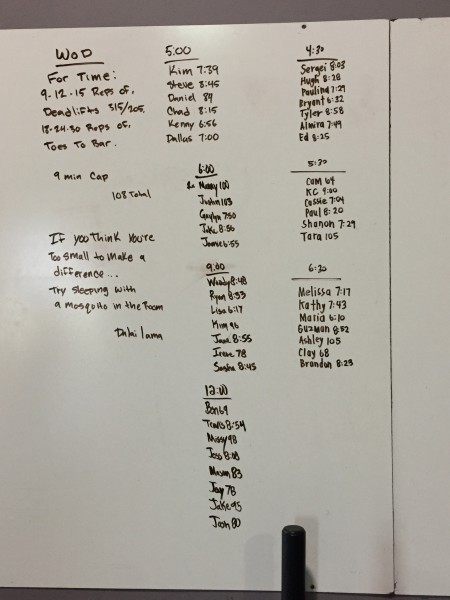 WOD
For Time:
9-12-15 Reps of,
Deadlifts 315/205.
18-24-30 Reps of.
Toes To Bar.
9 min Cap
108 Total
If you Think You're
Too small to Make a
difference...
Try Sleeping with
a mosquito in the room
Dalai Lama
5:00
Kim 7:39
Steve 8:45
Daniel 84
Chad 8:15
Kenny 6:56
Dallas 7:00
6:00
100
Justin 103
7:50
Jake 8:56
6:55
9:00
Woody 8:48
Ryan 8:53
Lisa 6:17
Kim 96
8:55
Irene 78
Sasha 8:45
12:00
Ben 69
Travis 8:54
Missy 98
Jess 8:08
Mason 83
Jay 78
Jake 95
Josh 80
4:30
Sergei 8:03
Hugh 8:28
Paulina 7:29
Bryant 6:32
Tyler 8:58
Almira 7:49
Ed 8:25
5:30
Cam 64
KC 9:00
Cassie 7:04
Paul 8:20
Shanon 7:29
Tara 105
6:30
Melissa 7:17
Kathy 7:43
Maria 6:10
Guzman 8:52
Ashley 105
Clay 68
Brandon 8:23